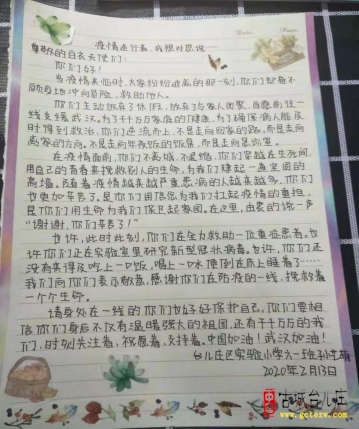 疫情逆行者,我想对您说
尊敬的白衣天使们:
你们好!
当疫情来临时,大家纷纷逃离的那一刻,你们却奋不
顾身地冲向前险,救助他人。
你们主动放弃了休假,放弃了与家人团聚,自愿前往一
线支援武汉。为了千千万万家庭的健康,为了确保病人能及
时得到救治,你们逆流而上,不是走向回家的路,而是走向
离家的方向。不是走向年夜饭的饭桌,而是走向急诊室。
在疫情面前,你们不畏惧,不退缩,你们穿越在生死间,
用自己的青春来挽救别人的生命,为我们建起一道坚固的
高墙。随着疫情越来越严重,患病的人越来越多,你们
也更加辛苦了。是你们用肩膀为我们扛起疫情的重担,
是你们用生命为我们保卫起家园。在这里,由衷的说一声
“谢谢,你们辛苦了!”
也许,此时此刻,你们在全力救助一位重症患者。也
许,你们正在实验室里研究新型冠状病毒。也许,你们还
没有来得及吃上一口饭,喝上一口水,便倒在床上睡着了……
我们向你们表示敬意,感谢你们在防疫的一线,挽救着
一个个生命。
请身处在一线的你们也好好保护自己,你们要相
信你们身后不仅有温暖强大的祖国,还有千千万万的我
们,时刻关注着、祝愿着、支持着。中国加油!武汉加油!
台儿庄区实验小学六一班
2020年2月13日
古城台儿庄
www.gctezw.com